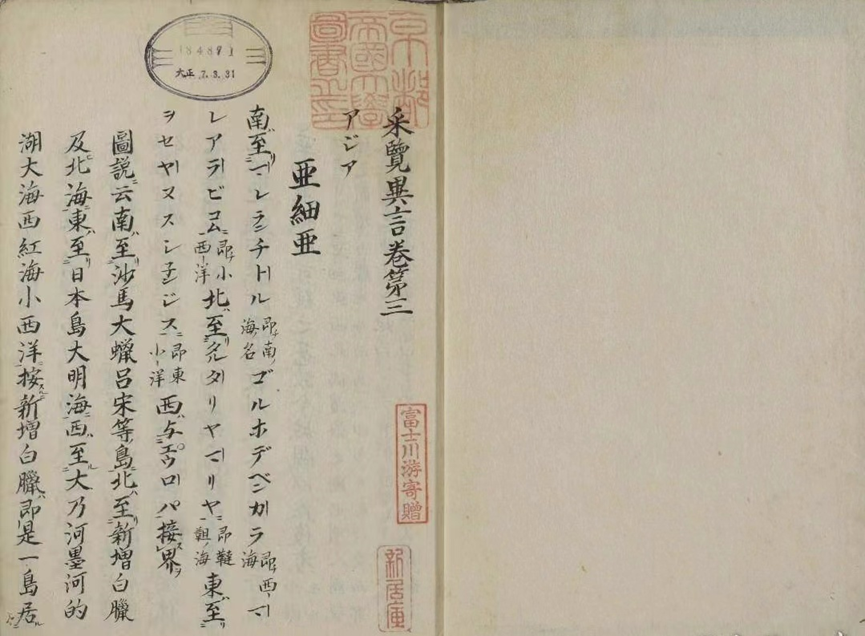 京都
帝國大學
圖書之印
184891
大正 7.3.31
采覽異言巻第三
アジア
亜細亜
南至マレランチトル即南海名ゴルホデベンガラ即西海マ
レアラビコム即小西洋北至タルタリヤマリヤ即韃靼海東至
ヲセヤヌスシネンジス即東小洋西与エウロパ接界
圖説云南至沙馬大蠟呂宋等島北至新増白臘
及北海東至日本島大明海西至大乃河墨河的
湖大海西紅海小西洋按新増白臘即是一島居
富士川游寄贈